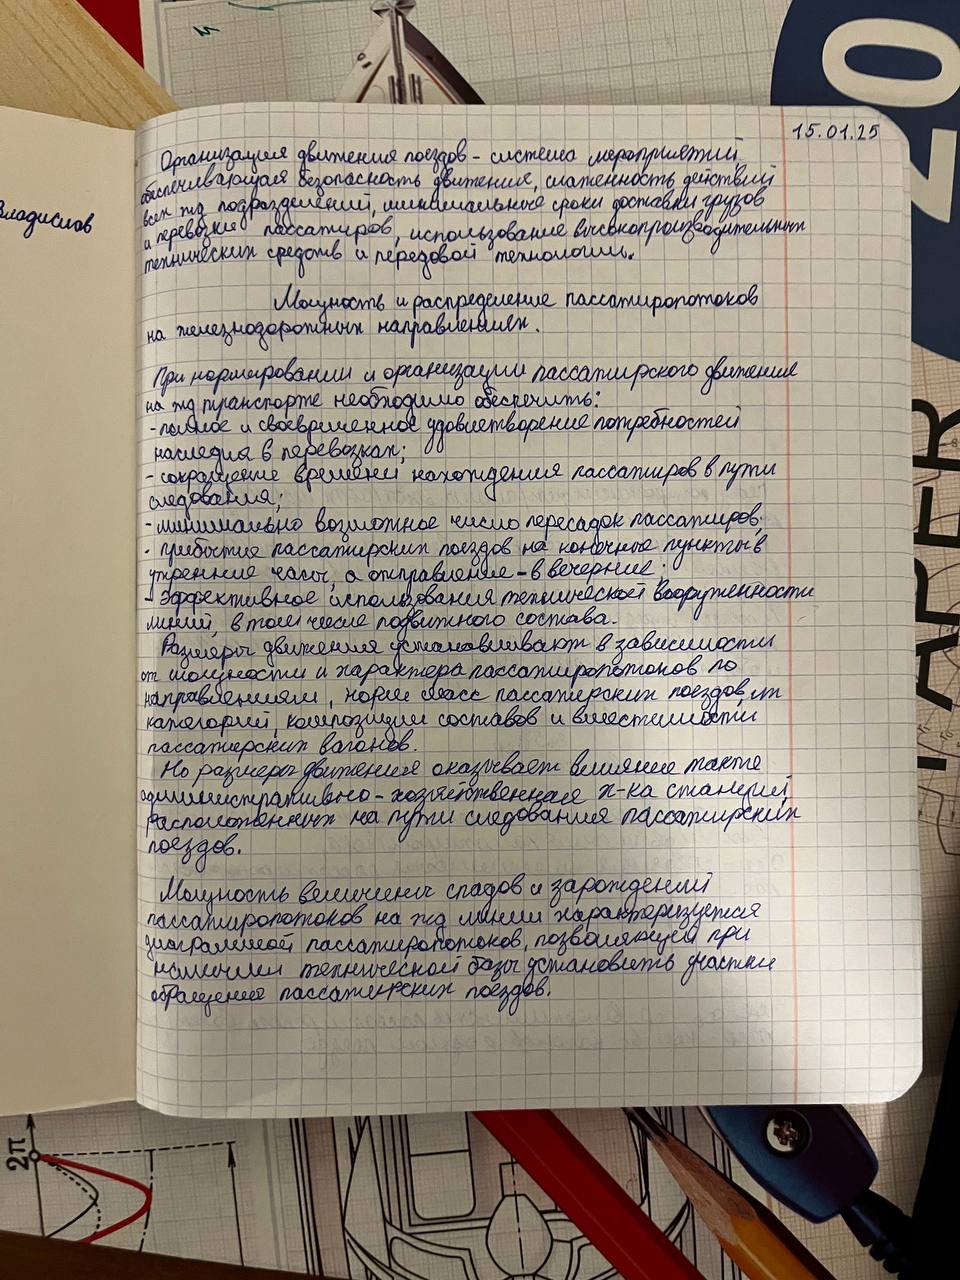 15.01.25
Организация движения поездов - система мероприятий,
обеспечивающая безопасность движения, слаженность действий
всех жд подразделений, минимальные сроки доставки грузов
и перевозки пассажиров, использование высокопроизводительных
технических средств и передовой технологии.
Мощность и распределение пассажиропотоков
на железнодорожных направлениях.
При нормировании и организации пассажирского движения
на жд транспорте необходимо обеспечить:
- полное и своевременное удовлетворение потребностей
наследия в перевозках;
- сокращение времени нахождения пассажиров в пути
следования;
- минимально возможное число пересадок пассажиров;
- прибытие пассажирских поездов на конечные пункты в
утренние часы, а отправление - в вечерние.
- Эффективное использования технической вооруженности
линий, в том числе подвижного состава.
Размеры движения устанавливают в зависимости
от мощности и характера пассажиропотоков по
направлениям, норм масс пассажирских поездов, их
категорий, композиции составов и вместимости
пассажирских вагонов.
На размеры движения оказывает влияние также
административно-хозяйственная х-ка станций,
расположенных на пути следования пассажирских
поездов.
Мощность величины спадов и зарождений
пассажиропотоков на жд линии характеризуется
диаграммой пассажиропотоков, позволяющей при
наличии технической базы установить участки
обращения пассажирских поездов.
Владислав
20
APER
2π